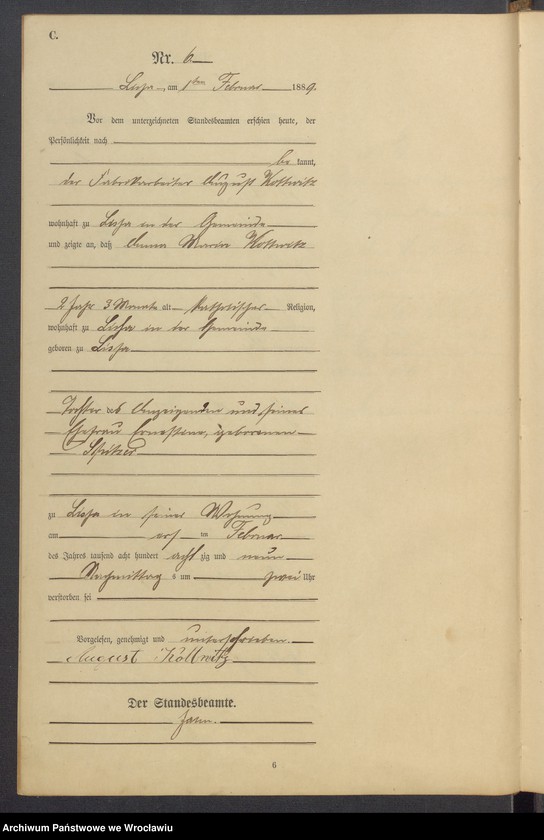 C.
Nr. 6
Lissa, am 1ten Februar 1889.
Vor dem unterzeichneten Standesbeamten erschien heute, der
Persönlichkeit nach
be kannt,
der Fabrikarbeiter August Kollwitz
wohnhaft zu Lissa in der Gemeinde
und zeigte an, daß Anna Maria Kollwitz
2 Jahr 3 Monate alt katholischer Religion,
wohnhaft zu Lissa in der Gemeinde
geboren zu Lissa
Tochter des Anzeigenden und seiner
Ehefrau Ernestine, geborenen
zu Lissa in seiner Wohnung
am ten Februar
des Jahres tausend acht hundert acht zig und neun
Nachmittag s um zwei Uhr
verstorben sei
Vorgelesen, genehmigt und unterschrieben.
August Kollwitz
Der Standesbeamte.
6
Archiwum Państwowe we Wrocławiu